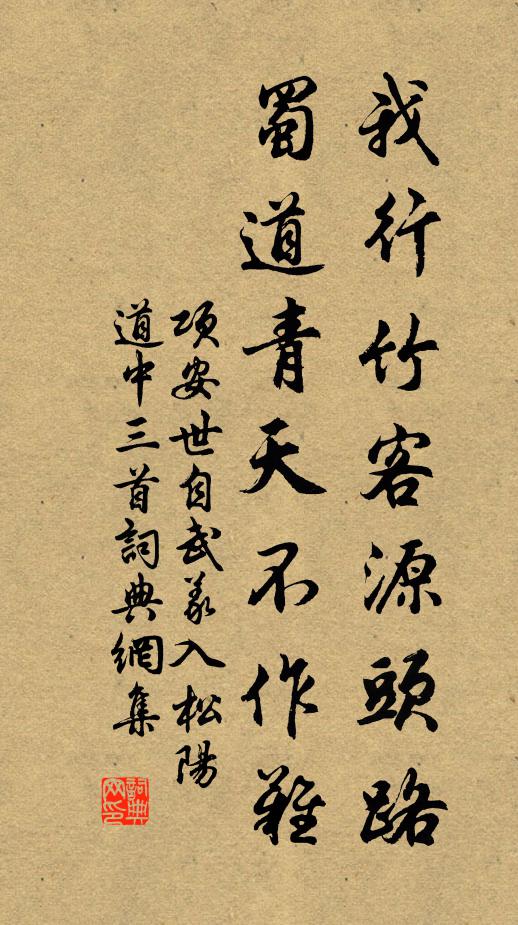 我行竹客源頭路
蜀道青天不作難
項安世自武義入松陽
道中三首詞典網集
詞典
网印